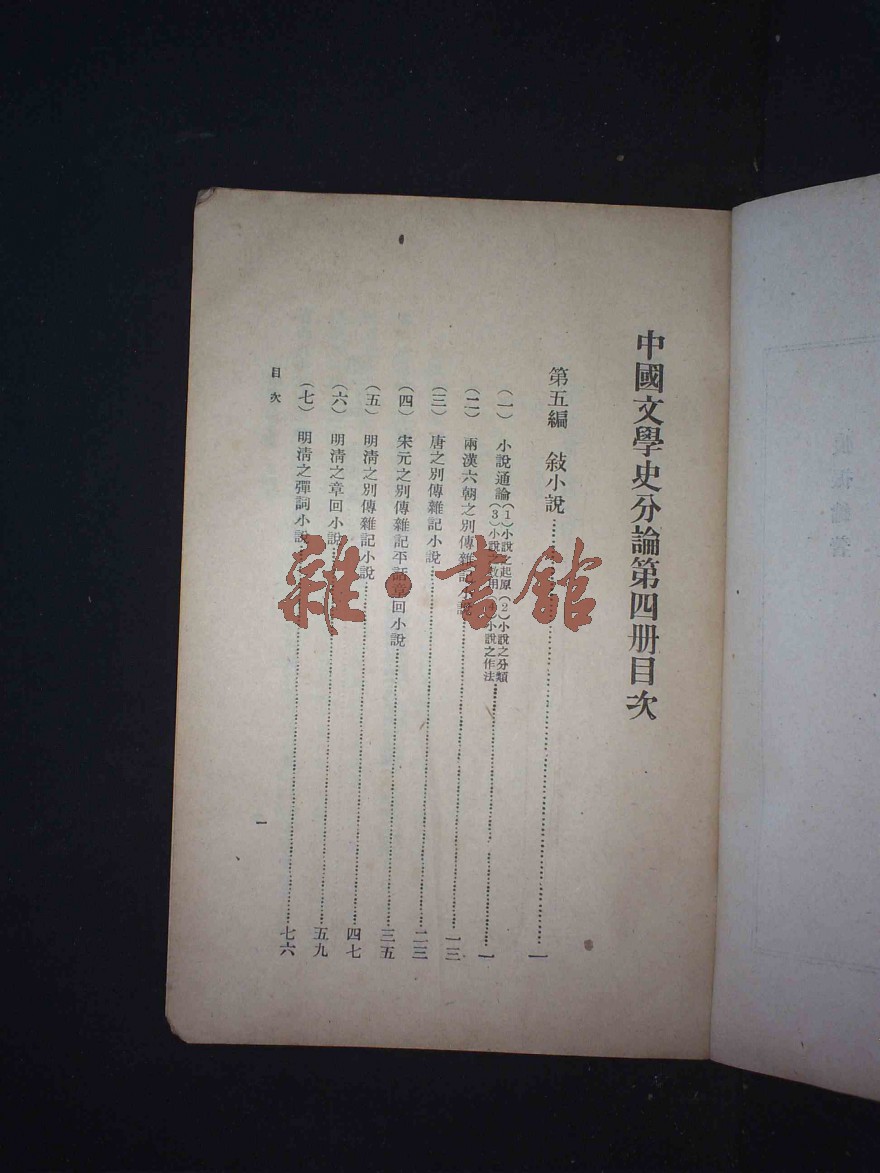 中國文學史分論第四册目次
第五編　敍小說……一
（一）　小說通論（1）小說之起原（2）小說之分類（3）小說之效用（4）小說之作法……一
（二）　兩漢六朝之別傳雜記小說……一三
（三）　唐之別傳雜記小說……二三
（四）　宋元之別傳雜記平話章回小說……三五
（五）　明清之別傳雜記小說……四七
（六）　明清之章回小說……五九
（七）　明清之彈詞小說……七六
目次
一
雜·書館